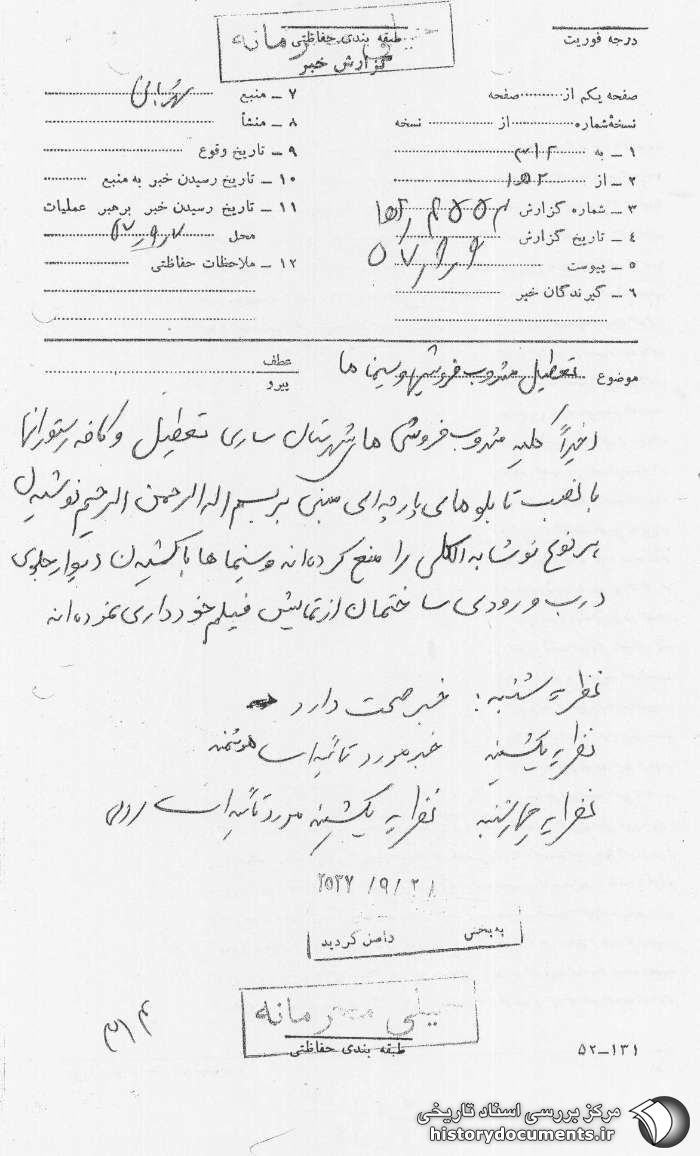 خیلی محرمانه
طبقه بندی حفاظتی
گزارش خبر
درجه فوریت
صفحه یکم از صفحه
نسخهٔ شماره از نسخه
۱ ــ به ۳۱۲
۲ ــ از
۳ ــ شماره گزارش
٤ ــ تاریخ گزارش
۵ ــ پیوست
۶ ــ گیرندگان خبر
۷ ــ منبع
۸ ــ منشأ
۹ ــ تاریخ وقوع
۱۰ ــ تاریخ رسیدن خبر به منبع
۱۱ ــ تاریخ رسیدن خبر برهبر عملیات
محل
۱۲ ــ ملاحظات حفاظتی
موضوع تعطیل مشروب فروشیها و سینما ها
عطف
پیرو
اخیراً کلیه مشروب فروشی های شهرستان ساری تعطیل و کافه رستورانها
با نصب تابلوهای پارچه ای مبنی بر بسم اله الرحمن الرحیم نوشیدن
هر نوع نوشابه الکلی را منع کرده اند و سینما ها با کشیدن دیوار جلوی
درب ورودی ساختمان از نمایش فیلم خودداری نموده اند
نظریه شنبه : خبر صحت دارد
نظریه یکشنبه خبر مورد تائید است
نظریه چهارشنبه نظریه یکشنبه مورد تائید است
۲۵۳۷ /۹/ ۲۱
به بخش واصل گردید
خیلی محرمانه
طبقه بندی حفاظتی
۳۱۲
۵۲ــ۱۳۱
مرکز بررسی اسناد تاریخی
historydocuments.ir